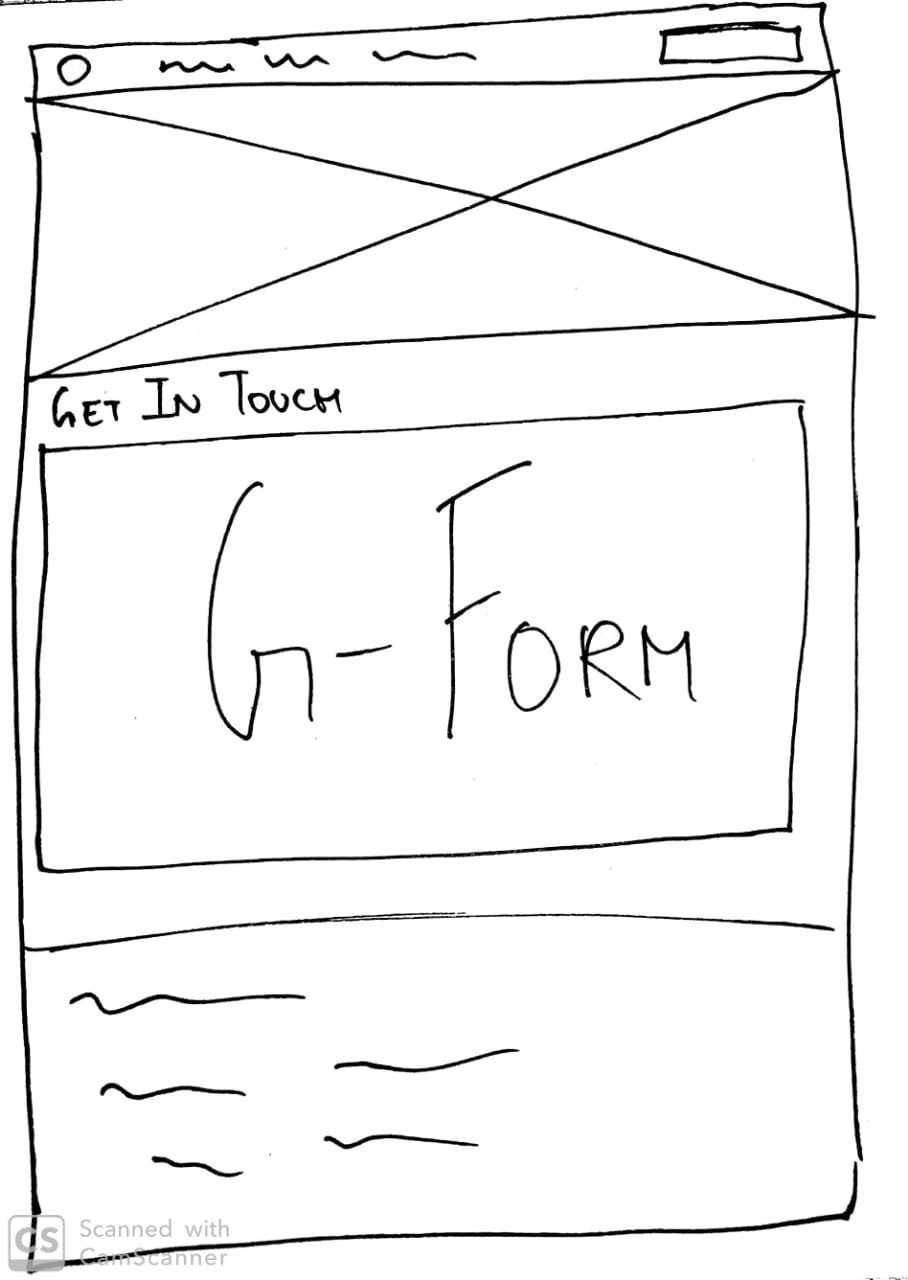 GET IN TOUCH
G-FORM
CS Scanned with
CamScanner